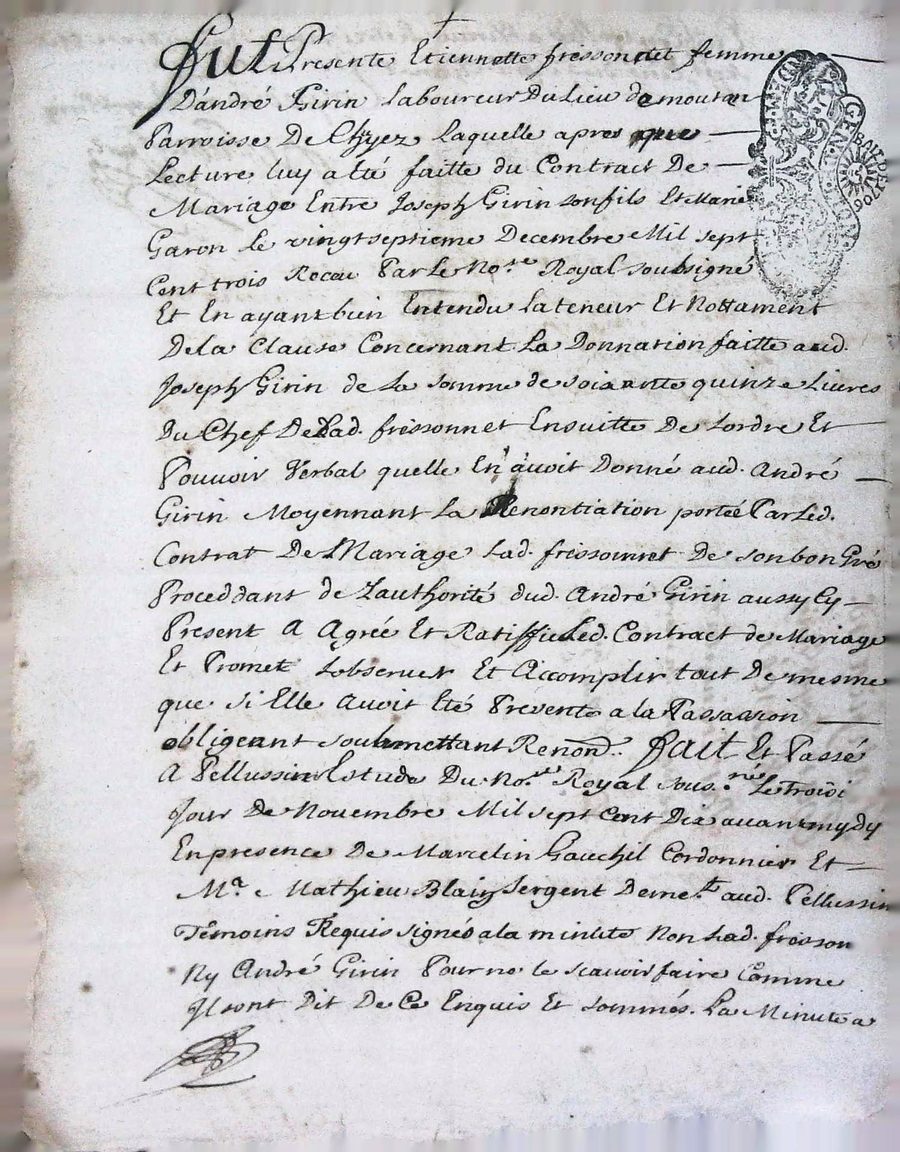 Fut Presente Etiennette frissonnet femme
D'andré Girin Laboureur Du Lieu de moutan
Parroisse De Laquelle apres que
Lecture luy a été faitte du Contract De
Mariage Entre Joseph Girin son fils Et Marie
Garon le vingt septieme Decembre Mil sept
Cent trois Receu Par Le No.re Royal soubsigné
Et En ayant bien Entendu La teneur Et Nottament
De la Clause Concernant La Donnation faitte aud.
Joseph Girin de La somme de soixante quinze Livres
Du Chef De Lad. frissonnet Ensuitte De Lordre Et
Pouvoir Verbal quelle En avoit Donné aud. André
Girin Moyennant La Renontiation portée Par Led.
Contrat De Mariage Lad. frissonnet De son bon Gré
Proceddant de Lauthorité dud. André Girin aussy Cy
Present A Agréé Et Ratiffié Led. Contract de Mariage
Et Promet Lobserver Et Accomplir tout De mesme
que si Elle Avoit été Presente a la Passassion
obligeant soubmettant Renond.. Fait Et Passé
A Pellussin Estude Du No.re Royal sous.né Le Troisi
Jour De Novembre Mil sept Cent Dix avant mydy
En presence De Marcelin Gauchil Cordonnier Et
M.e Mathieu Blain Sergent aud. Pellussin
Temoins Requis signés a la minute Non Lad. frisson
Ny André Girin Pour ne le scavoir faire Comme
Ils ont Dit De Ce Enquis Et sommés. La Minute a
GEN